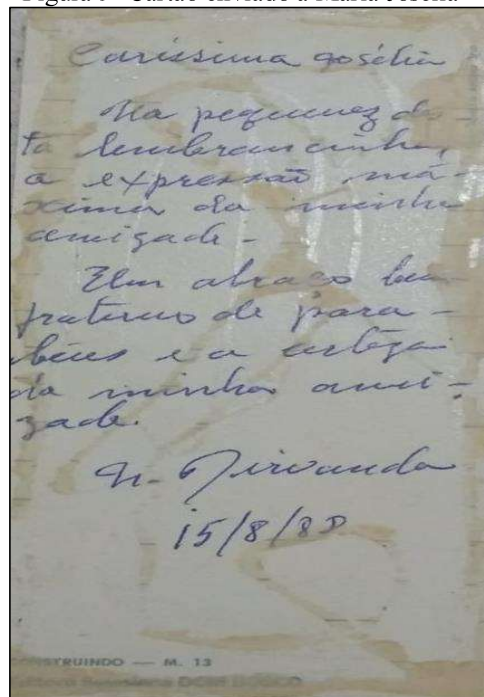 Caríssima Josélia
Na pequenez des
ta lembrancinha,
a expressão má-
xima da minha
amizade.
Um abraço bem
fraterno de para-
béns e a certeza
da minha ami-
zade.
15/8/88
CONSTRUINDO — M. 13
Editora Salesiana DOM BOSCO